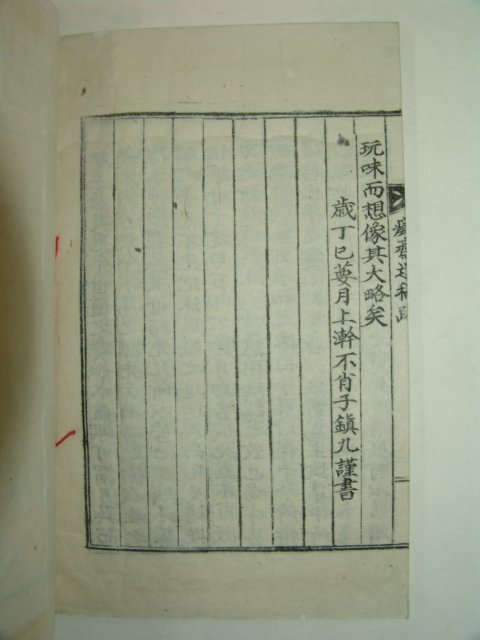 玩味而想像其大略矣
歲丁巳蔞月上澣不肖子鎭九謹書